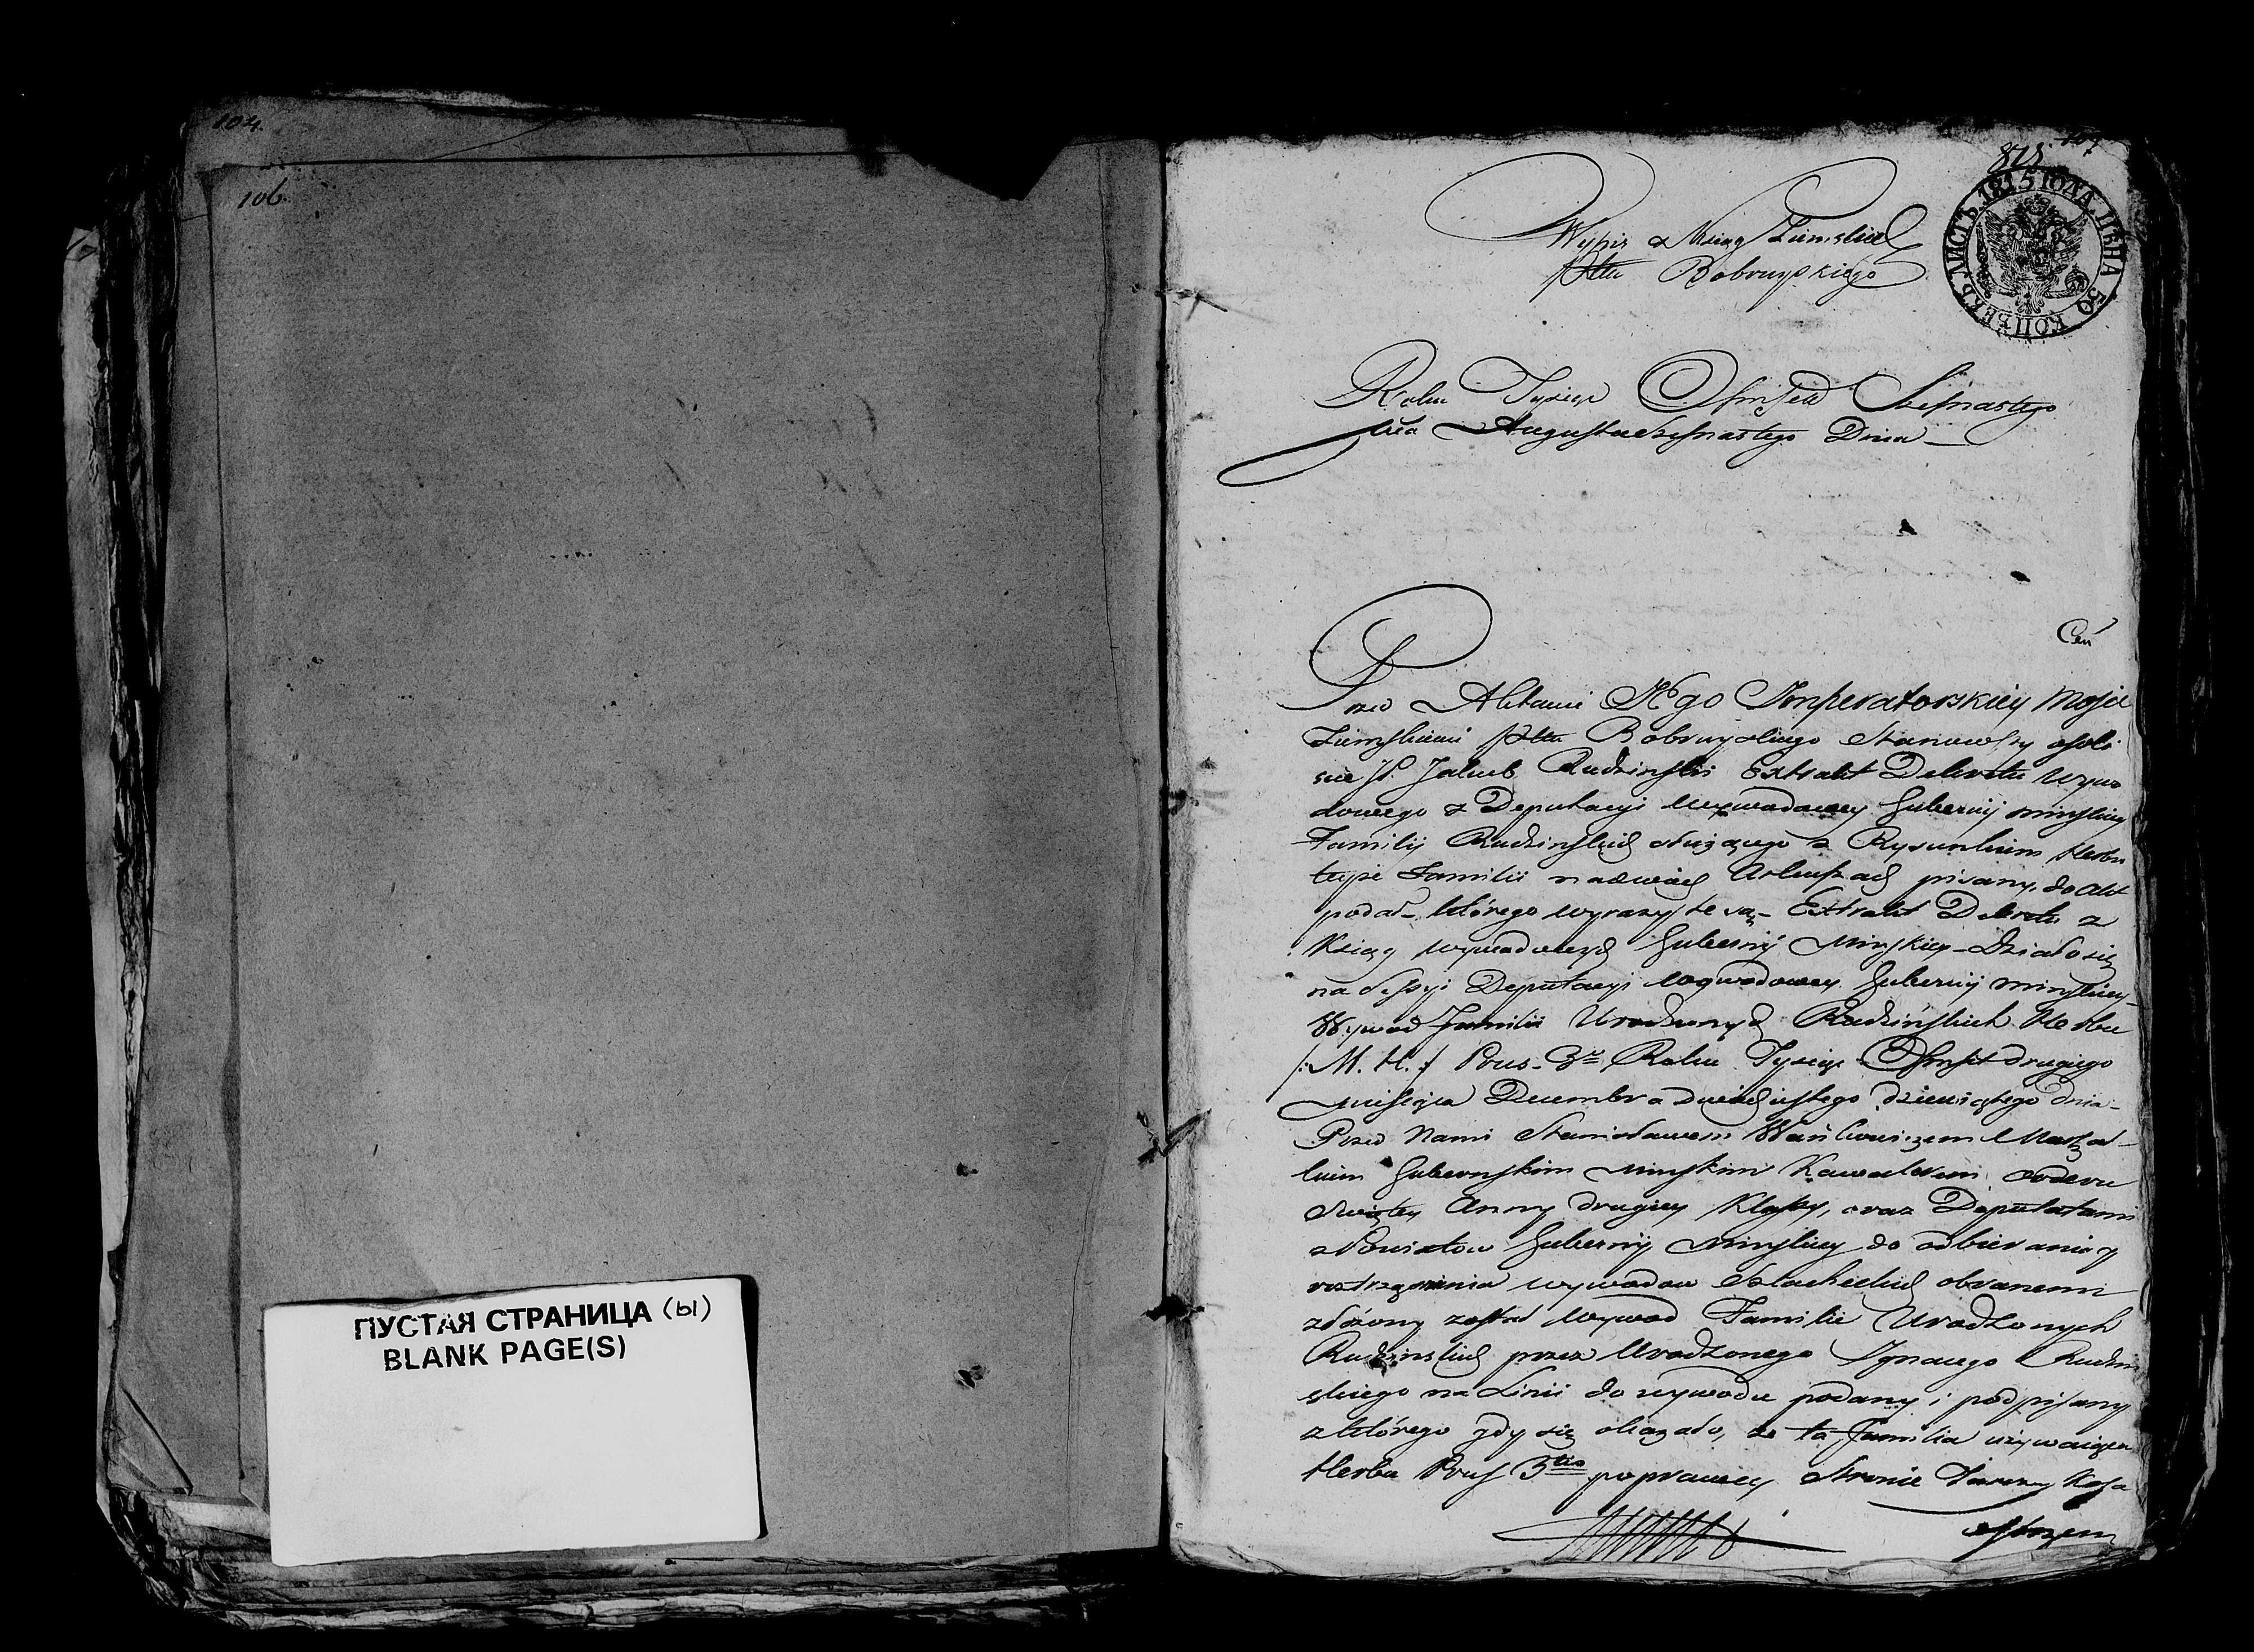 104.
106.
ПУСТАЯ СТРАНИЦА (ы)
BLANK PAGE(S)
878. 107
ЛИСТЪ. 1815 ГОДА. ЦѢНА 50 КОПѢЕКЪ
Wypis z Xiąg Ziemskich
Pttu Bobruyskiego
Roku Tysiąc Ośmset Szesnastego
Mca Augusta Szesnastego Dnia
Przed Aktami JEgo Imperatorskiey Mości
Ziemskiemi Pttu Bobruyskiego Stanowszy osobi
ście JP. Jakub Rudzinski Extrakt Dekretu Wywo
dowego z Deputacyi Wywodowey Gubernij minskiey
Familij Rudzinskich służącego z Rysunkiem Herbu
teyże Familii na dwóch Arkuszach pisany, do Akt
podał_ którego wyrazy te są_ Extrakt Dekretu z
Xiąg wywodowych Gubernij Minskiey_ Działo się
na Sessyi Deputacyi Wywodowey Gubernij minskiey_
Wywod Familii Urodzonych Rudzińskich Herbu
/: M. H. :/ Prus_ 3o Roku Tysiąc Ośmset drugiego
miesiąca Decembra dwudziestego dziewiątego dnia_
Przed Nami Stanisławem Wańkowiczem Marszał-
kiem Gubernskim minskim Kawalerem orderu
Swiętey Anny drugiey Klassy, oraz Deputatami
z Powiatow Gubernij minskiey do odbierania y
roztrząsania wywodow Szlacheckich obranemi
złożony został Wywod Familii Urodzonych
Rudzinskich przez Urodzonego Ignacego Rudzin
skiego na Linii do wywodu podany i podpisany
z którego gdy się okazało, że ta Familia używaiąca
Herbu Prus 3tio po prawey Stronie Tarczy Kosa